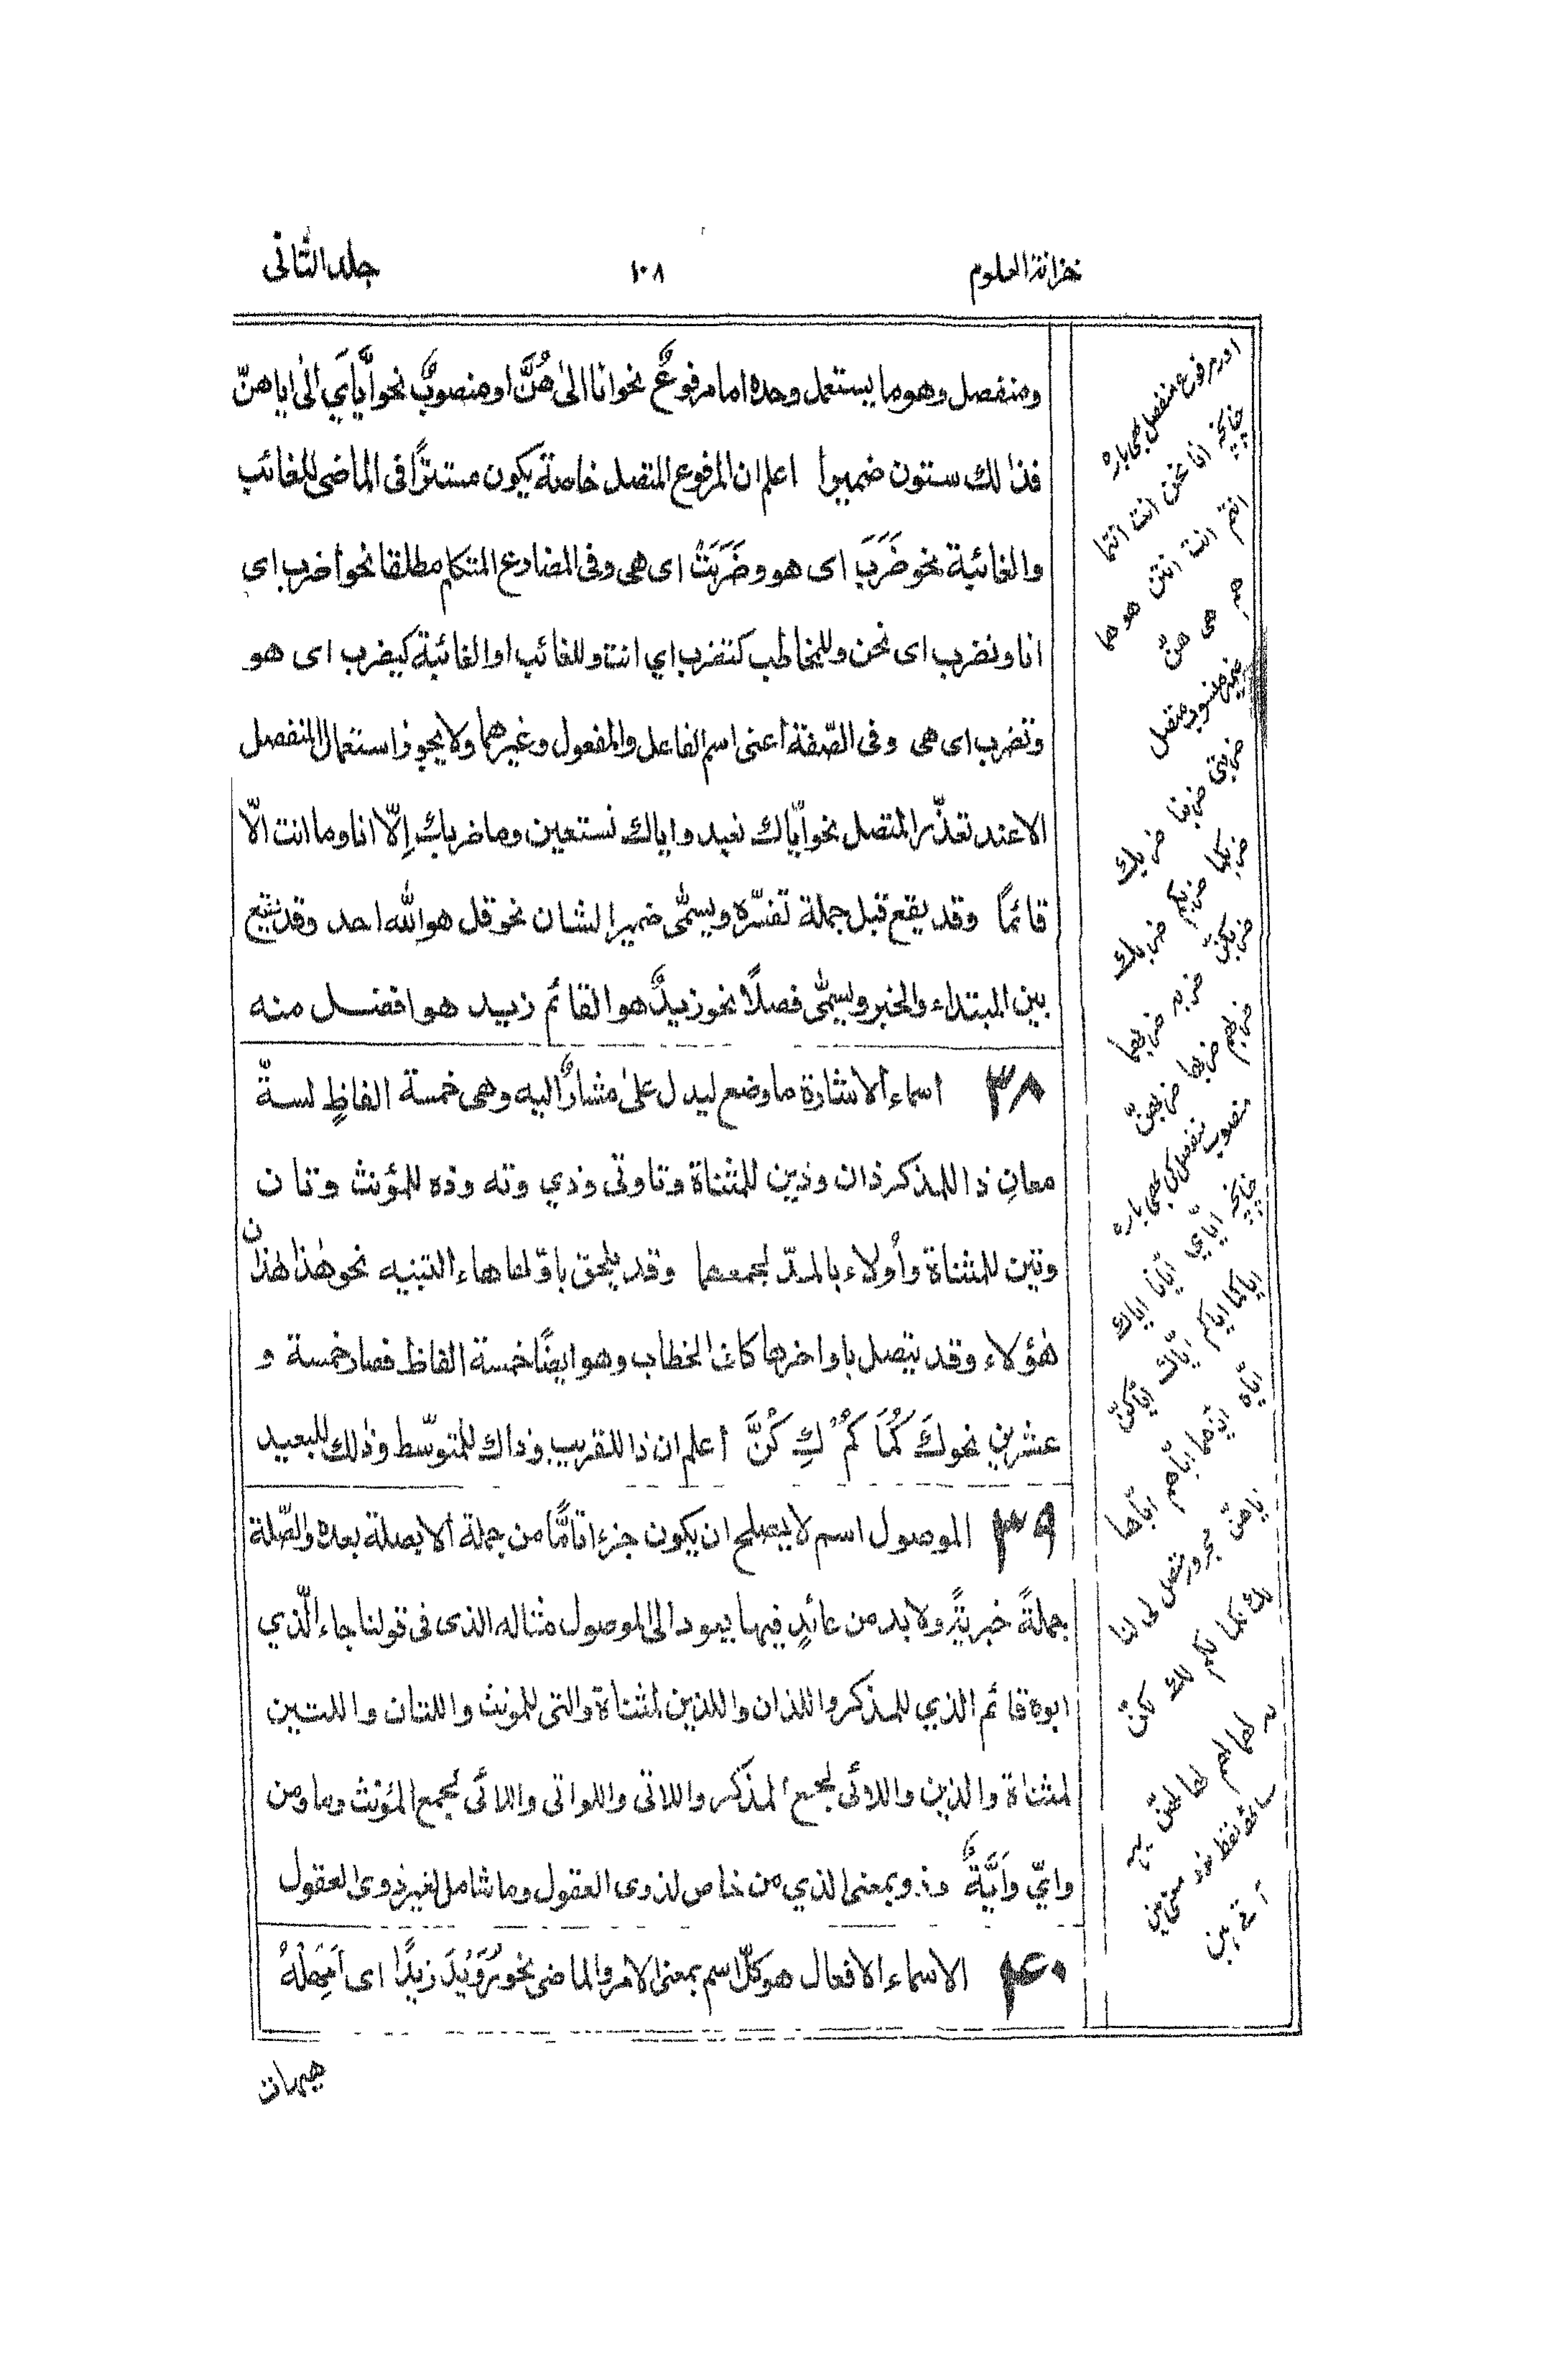 خزانة العلوم ١٠٨ جلد الثانی
ومنفصل وهو ما يستعمل وحده اما مرفوعٌ نحو انا الیٰ هُنَّ او منصوبٌ نحو ايّايَ الیٰ اياهنّ
فذالك ستون ضميرا اعلم ان المرفوع المتصل خاصة يكون مستترًا فی الماضی للغائب
والغائبة نحو ضَرَبَ ای هو وضَرَبَتْ ای هی وفی المضارع المتكلم مطلقا نحو اضرب ای
انا ونضرب ای نحن وللمخاطب كتضرب اي انت وللغائب او الغائبة كيضرب ای هو
وتضرب ای هی وفی الصّفة اعنی اسم الفاعل والمفعول وغيرهما ولا يجوز استعمال المنفصل
الا عند تعذّر المتصل نحو ايّاك نعبد واياك نستعين وما ضربك اِلّا انا وما انت الّا
قائمًا وقد يقع قبل جملة تفسّره ويسمّٰی ضمير الشان نحو قل هو الله احد وقد يقع
بين المبتداء والخبر ويسمّٰی فصلًا نحو زيدٌ هو القائم زيد هو افضل منه
٣٨ اسماء الاشارة ما وضع ليدل علیٰ مشارٌ اليه وهی خمسة الفاظٍ لستّة
معانٍ ذا للمذكر ذان وذين للمثناة وتا وتی وذي وته وذه للمؤنث وتان
وتين للمثناة واُولاء بالمدّ لجمعهما وقد يلحق باوّلها هاء التنبيه نحو هٰذا هٰذان
هٰؤلاء وقد يتصل باواخرها كاف الخطاب وهو ايضًا خمسة الفاظ فصار خمسة و
عشرين نحو كَ كُمَا كُمْ كِ كُنَّ اعلم ان ذا للقريب وذاك للمتوسّط وذٰلك للبعيد
٣٩ الموصول اسم لا يصلح ان يكون جزءا تامًّا من جملة الا بصلة بعده والصّلة
جملةً خبريةً ولابد من عائدٍ فيها يعود الی الموصول مثاله الذی فی قولنا جاء الّذي
ابوه قائم الذي للمذكر واللذان واللذين لمثناة والتی للمونث واللتان واللتين
لمثناة والذين واللائی لجمع المذكر واللاتی واللواتی واللائی لجمع المؤنث وما ومن
وايّ واَيّةٌ وذو بمعنی الذي من خاص لذوی العقول وما شامل لغير ذوی العقول
۴٠ الاسماء الافعال هو كلّ اسم بمعنی الامر والماضی نحو رُوَيْدَ زيدًا ای اَمْهِلْهُ
هيهات
اور مرفوع منفصل بھی بارہ
چنانچہ انا نحن انت انتما
انتم انت انتن هو هما
هم هی هنّ
ضمیر منصوب متصل
ضربنی ضربنا ضربك
ضربكما ضربكم ضربك
ضربكنّ ضربہ ضربهما
ضربهم ضربها ضربهنّ
منصوب منفصل کی بھی بارہ
چنانچہ ايّاي ايّانا اياك
اياكما اياكم ايّاك ايّاكنّ
ايّاه ايّاهما ايّاهم ايّاها
اياهنّ مجرور متصل لی لنا
لك لكما لكم لك لكنّ
لہ لهما لهم لها لهنّ یہ